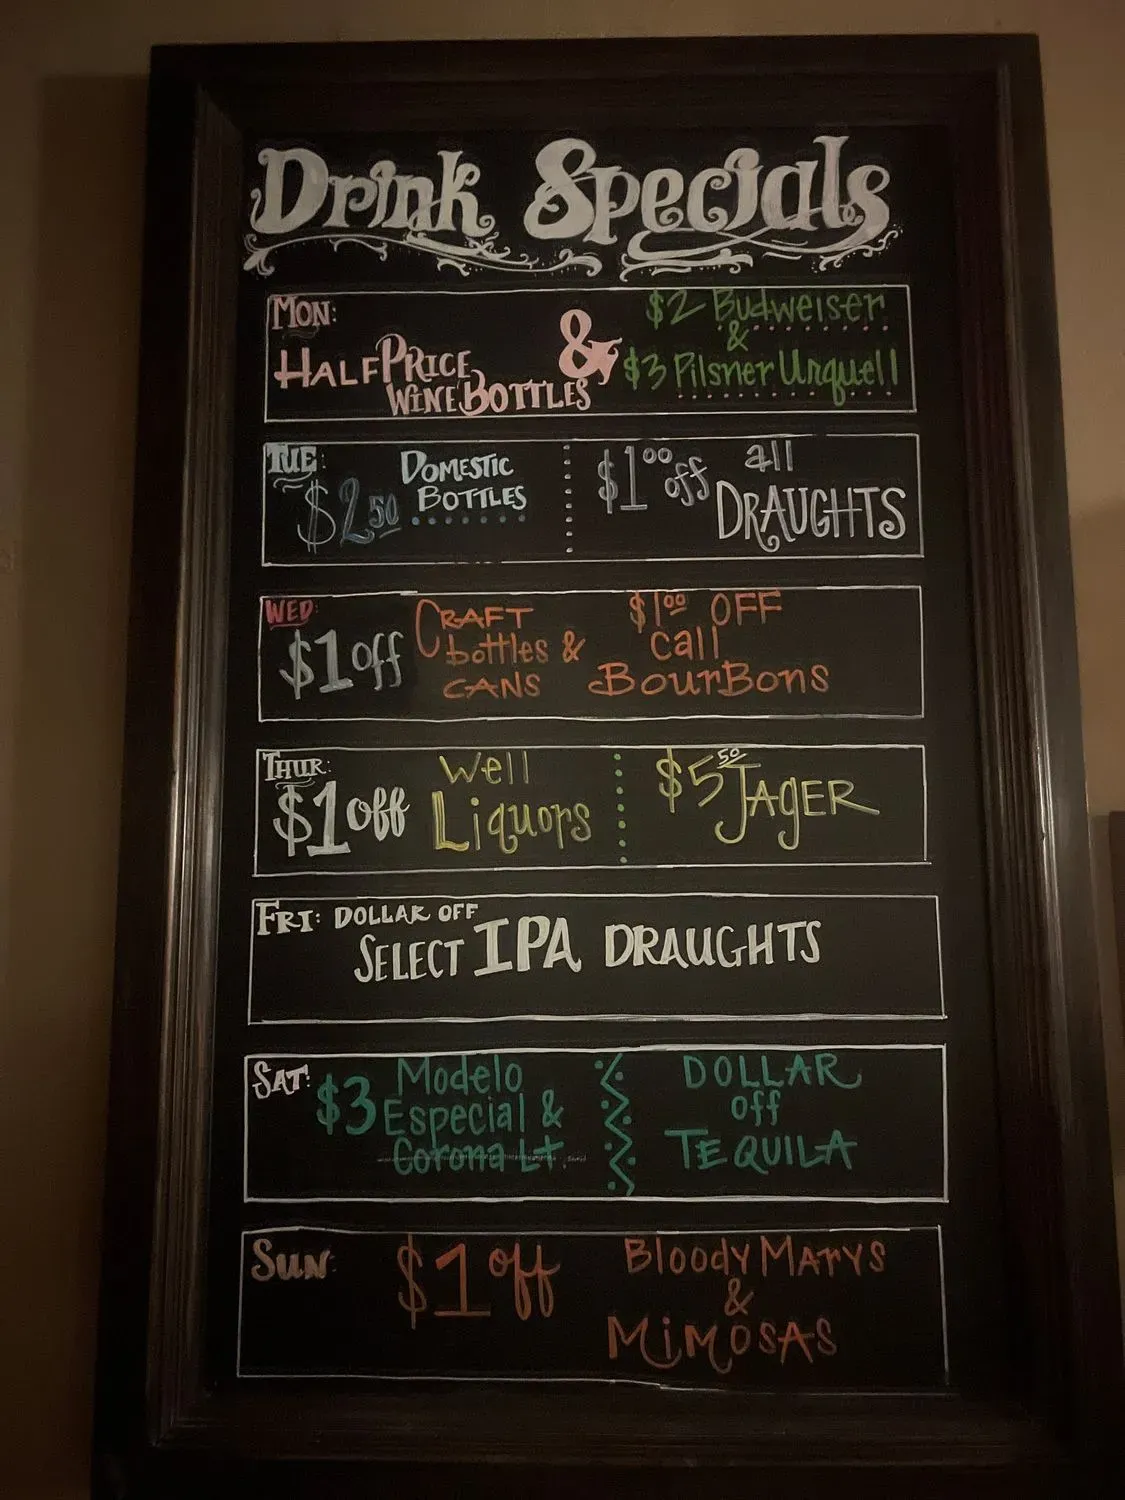 Drink Specials
MON:
HALF PRICE
WINE BOTTLES
&
$2 Budweiser
&
$3 Pilsner Urquell
TUE:
$2.50
DOMESTIC
BOTTLES
$1.00 off
all
DRAUGHTS
WED:
$1 off
CRAFT
bottles &
CANS
$1.00 OFF
call
BourBons
THUR:
$1 off
Well
Liquors
$5.50 JAGER
FRI: DOLLAR OFF
SELECT IPA DRAUGHTS
SAT:
$3 Modelo
Especial &
Corona Lt.
DOLLAR
off
TEQUILA
SUN:
$1 off
Bloody MARYS
&
MIMOSAS